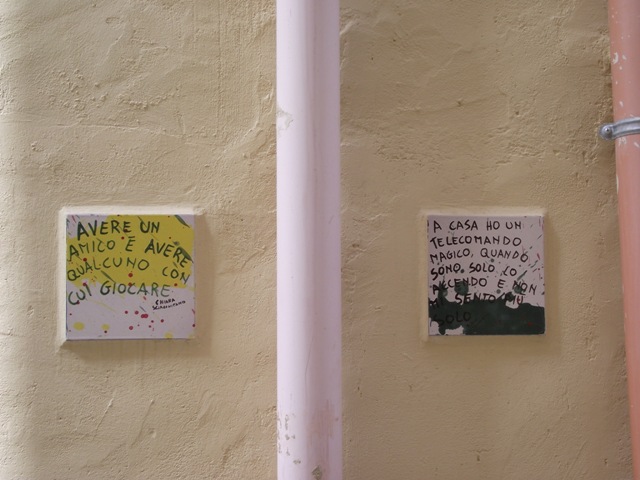 AVERE UN
AMICO È AVERE
QUALCUNO CON
CUI GIOCARE
CHIARA
A CASA HO UN
TELECOMANDO
MAGICO, QUANDO
SONO SOLO LO
ACCENDO E NON
MI SENTO PIÙ
SOLO